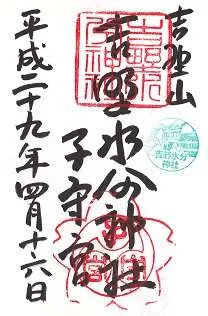 吉野山
吉野水分神社
子守宮
平成二十九年四月十六日
吉野水分
神社